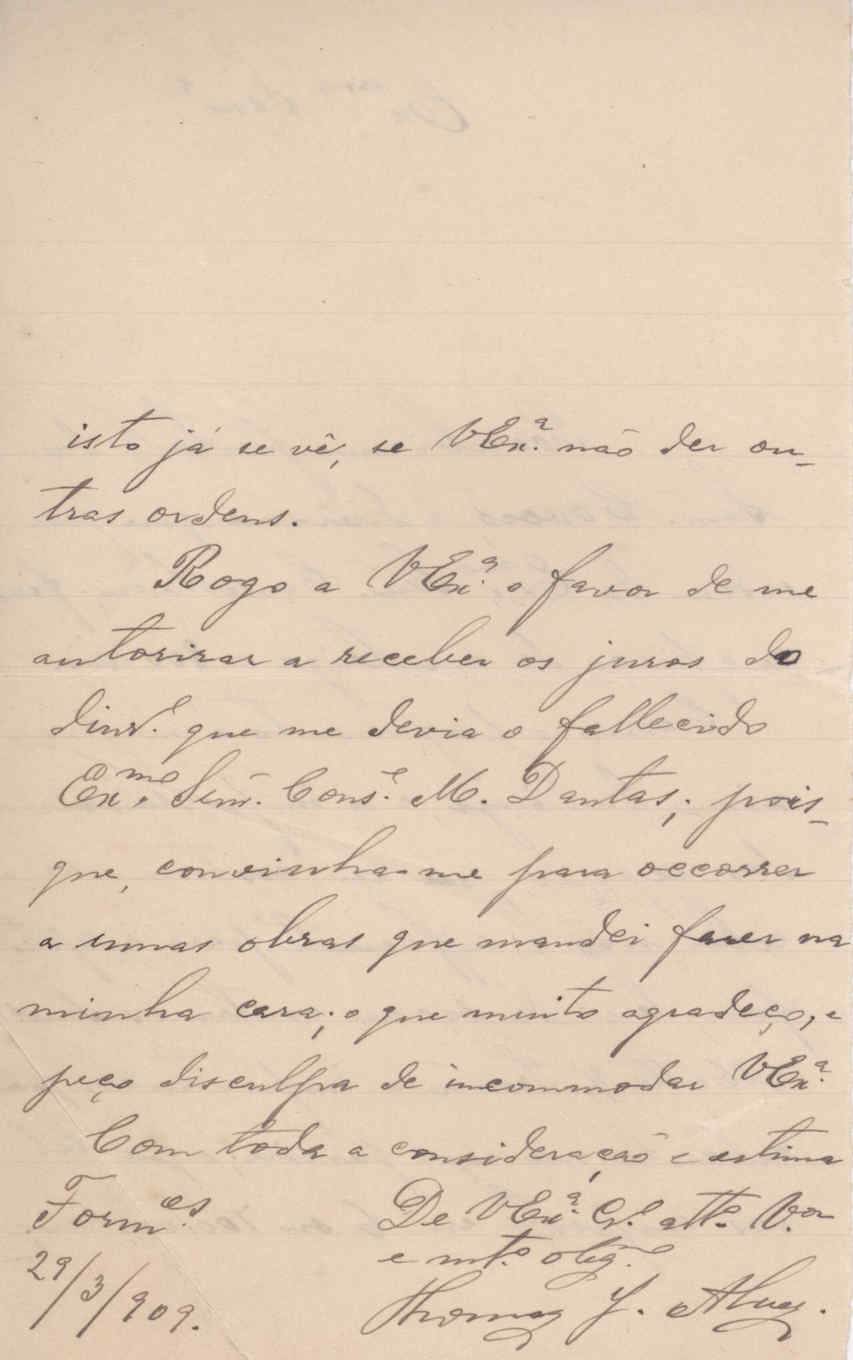 isto já se vê, se VEx.ª não der ou-
tras ordens.
Rogo a VEx.ª o favor de me
autorizar a receber os juros do
dinh.º que me devia o fallecido
Ex.mo Senr. Cons.º M. Dantas; pois-
que, convinha-me para occorrer
a umas obras que mandei fazer na
minha caza; o que muito agradeço, e
peço disculpa de incommodar VEx.ª
Com toda a consideração e estima
Form.es De VEx.ª Cr.º att.º V.or
e mt.º obg.º
29/3/909. Thomaz J. Alvez.